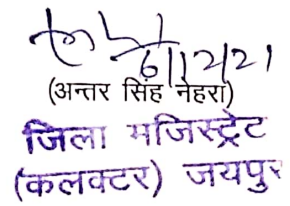 6/12/21
(अन्तर सिंह नेहरा)
जिला मजिस्ट्रेट
(कलक्टर) जयपुर